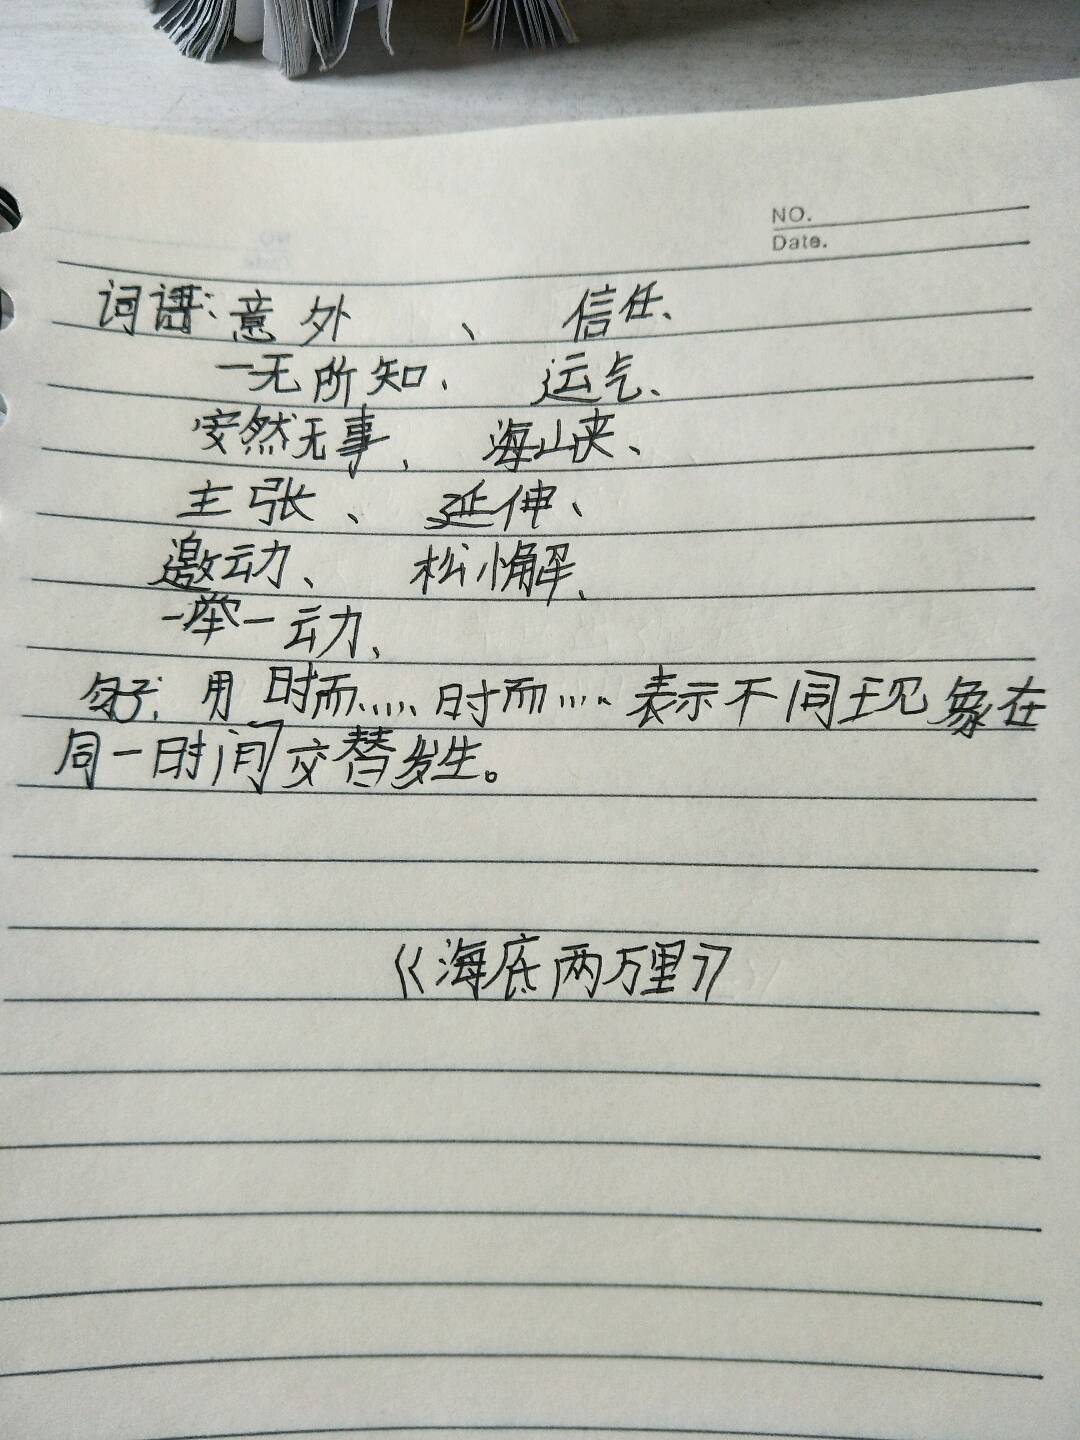 NO.
Date.
词语：意外 、 信任、
一无所知、 运气、
安然无事、 海峡、
主张、 延伸、
激动、 松懈、
一举一动、
句子：用时而……时而……表示不同现象在
同一时间交替发生。
《海底两万里》